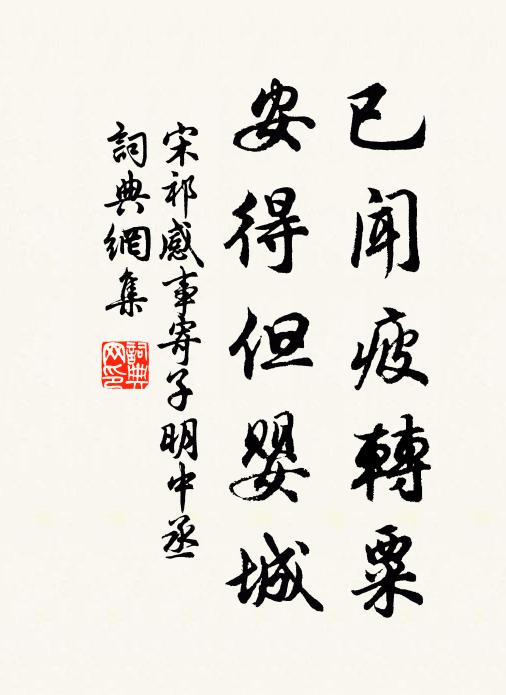 已聞疲轉粟
安得但嬰城
宋祁感事寄子明中丞
詞典網集
詞典网印